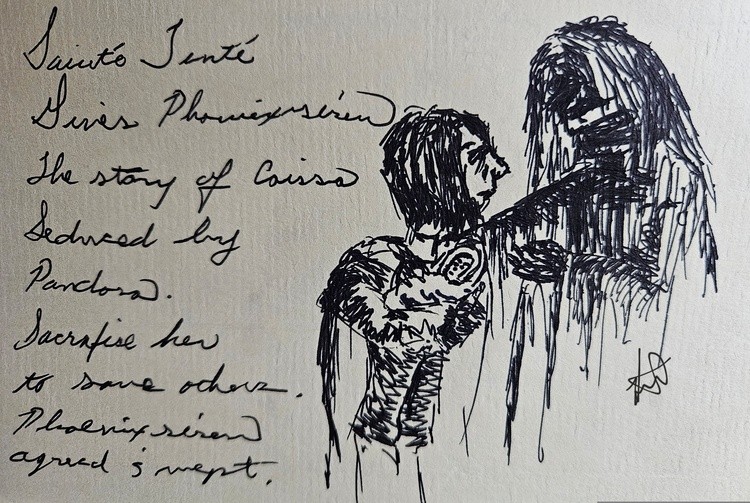 Sainté Tenté
Gives Phoenixsiren
The story of Caissa
Seduced by
Pandora.
Sacrafise her
to save others.
Phoenixsiren
agreed & wept.